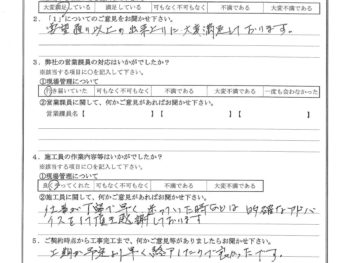 大変満足している 満足している 可もなく不可もなく 不満である 大変不満である
2. 「1」についてのご意見をお聞かせ下さい。
希望通り以上の出来上りに大変満足しております。
3. 弊社の営業課員の対応はいかがでしたか?
※該当する項目に○を記入して下さい。
①現場管理について
行き届いていた 可もなく不可もなく 不満である 大変不満である 一度も会わなかった
②営業課員に関して、何かご意見があればお聞かせ下さい。
営業課員名【 】【 】【 】
4. 施工員の作業内容等はいかがでしたか?
※該当する項目に○を記入して下さい。
①現場管理について
良くやってくれた 可もなく不可もなく 不満である 大変不満である
②施工員に関して、何かご意見があればお聞かせ下さい。
仕事が丁寧で早く 迷っていた時などは 的確なアドバ
イスを頂き感謝しております
5. ご契約時点から工事完工まで、何かご意見等がありましたらお聞かせ下さい。
工期が予定より早く終了したので良かったです。